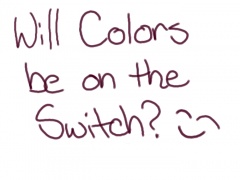 Will Colors
be on the
Switch?